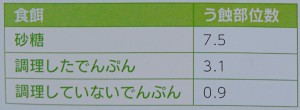 食餌 う蝕部位数
砂糖 7.5
調理したでんぷん 3.1
調理していないでんぷん 0.9